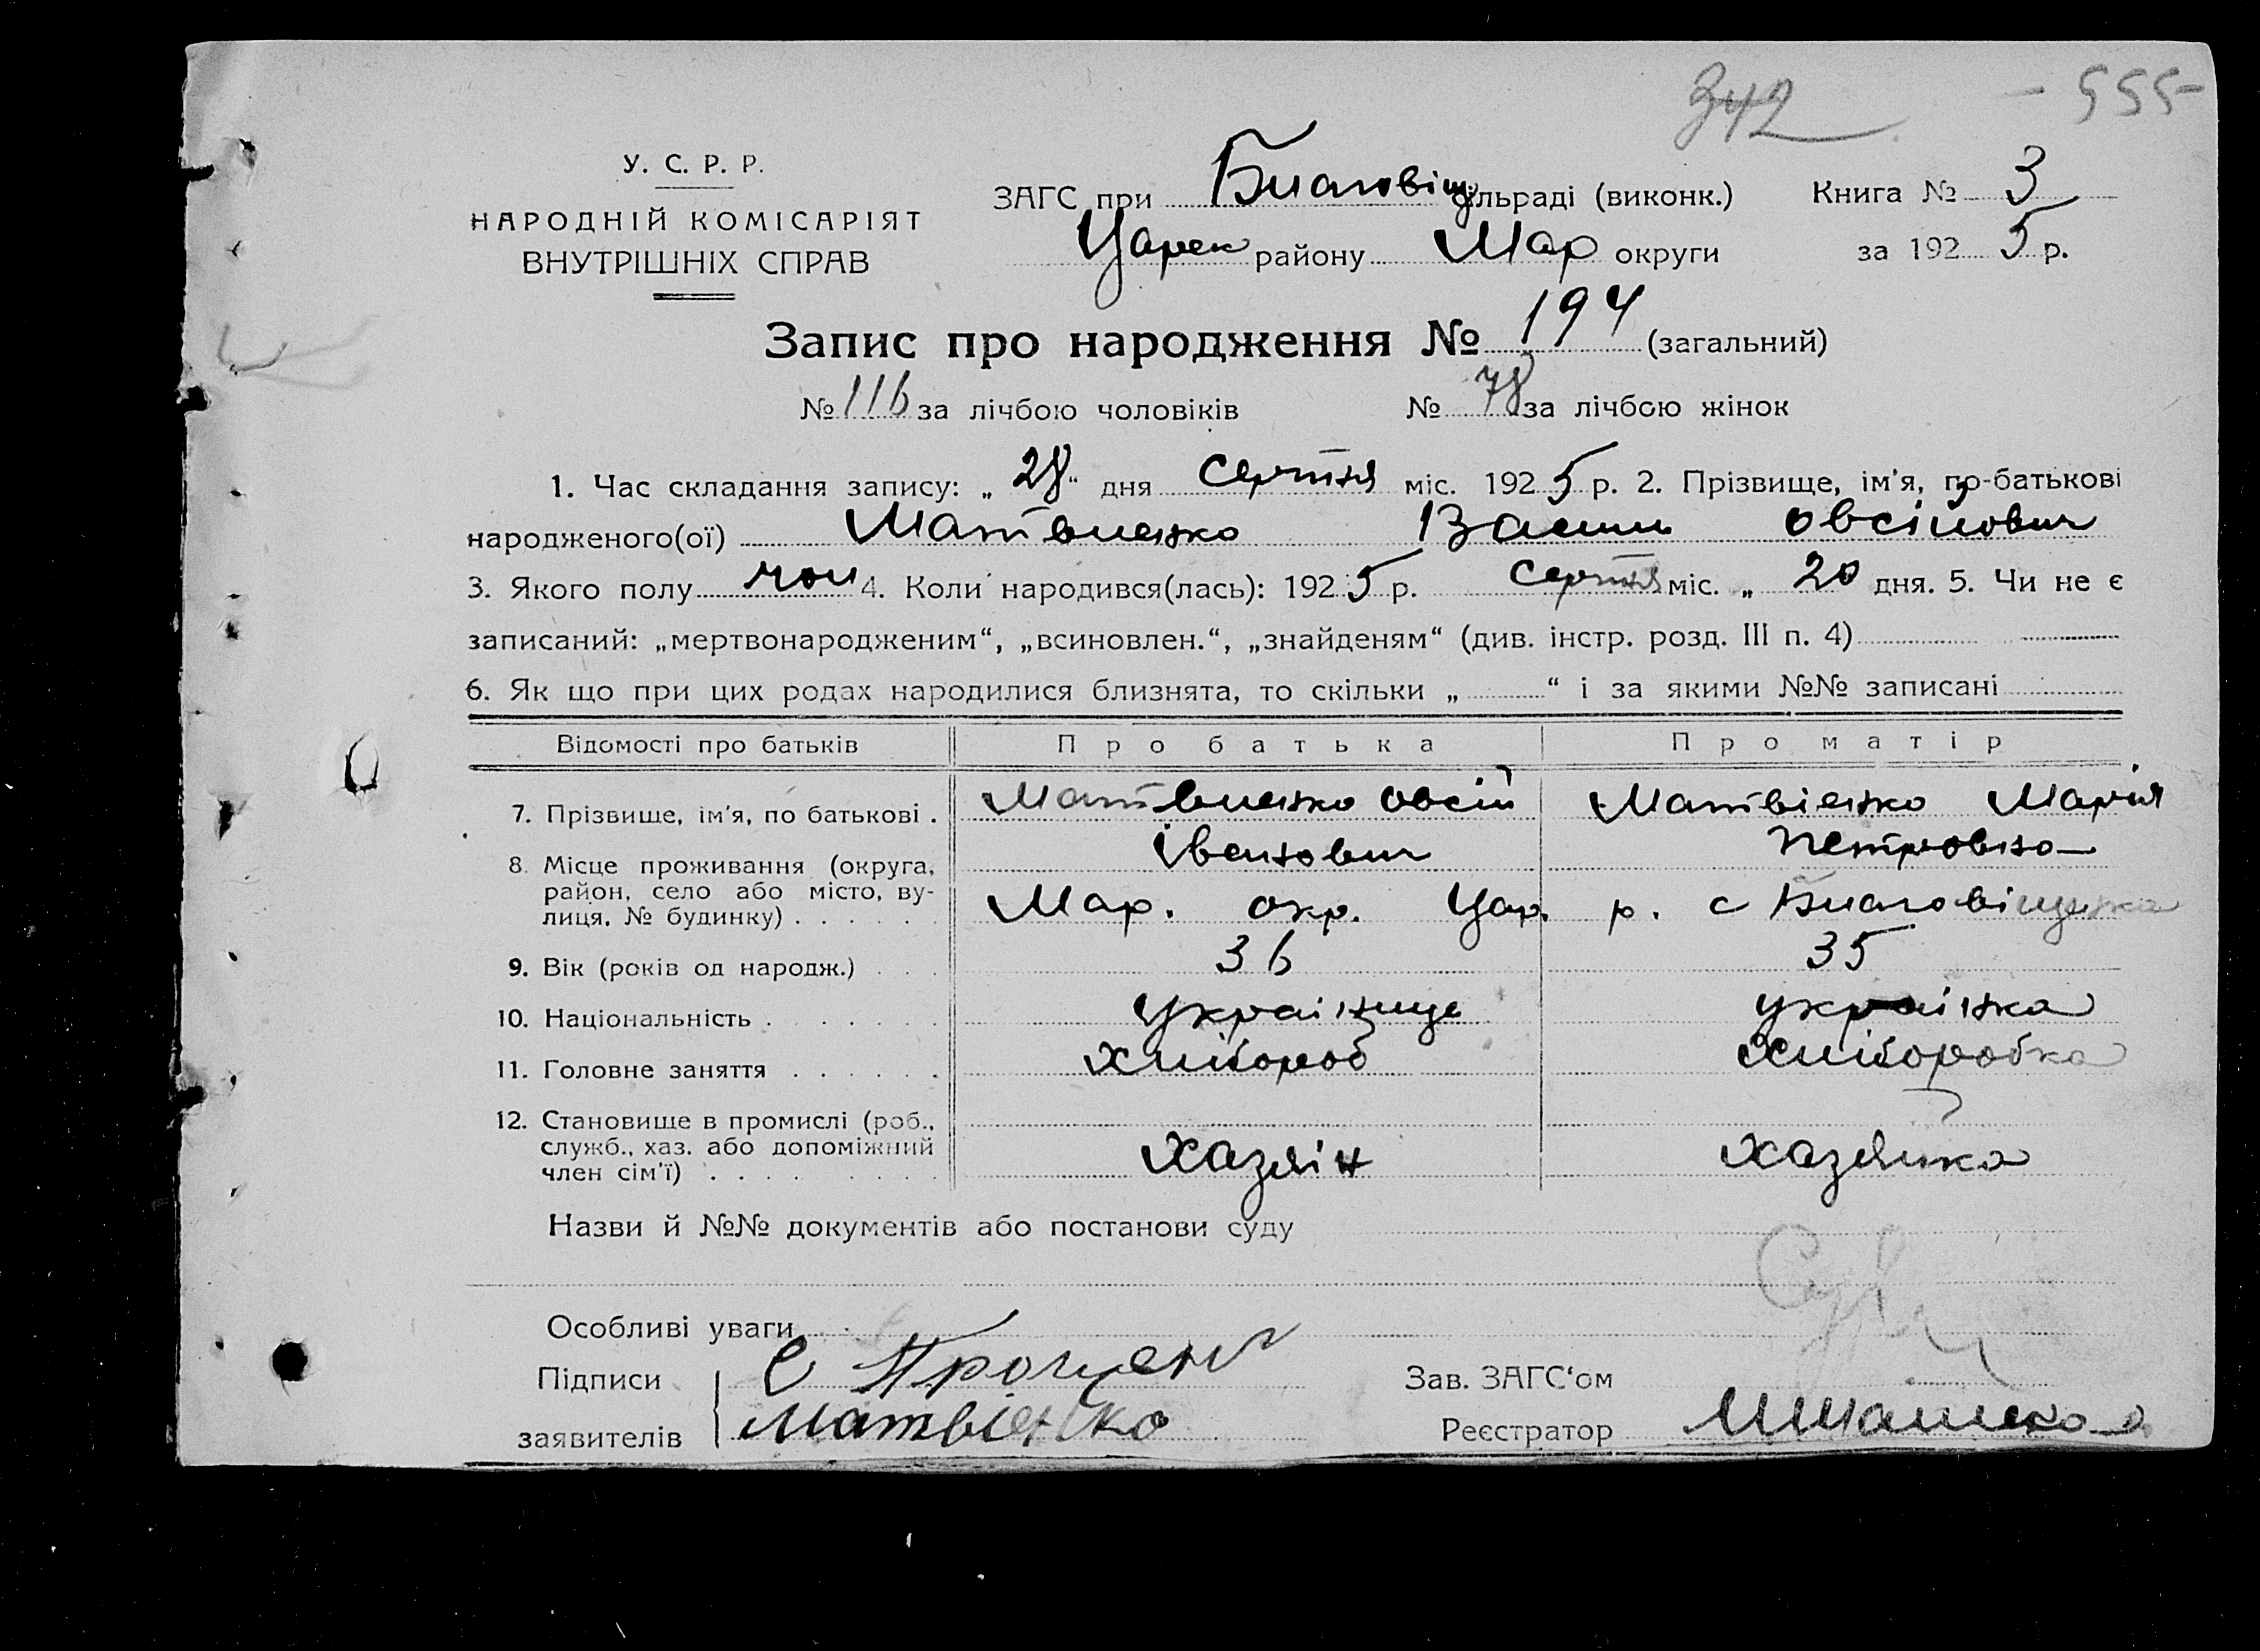 342 - 555-
У. С. Р. Р.
НАРОДНІЙ КОМІСАРІЯТ
ВНУТРІШНІХ СПРАВ
ЗАГС при Благовіщ сільраді (виконк.) Книга № 3
Царек району Мар округи за 1925 р.
Запис про народження № 194 (загальний)
№ 116 за лічбою чоловіків № 78 за лічбою жінок
1. Час складання запису: „28“ дня серпня міс. 1925 р. 2. Прізвище, ім'я, по-батькові
народженого(ої) Матвиенко Василь Овсійович
3. Якого полу чол 4. Коли народився(лась): 1925 р. серпня міс. „ 20 дня. 5. Чи не є
записаний: „мертвонародженим“, „всиновлен.“, „знайденям“ (див. інстр. розд. III п. 4)
6. Як що при цих родах народилися близнята, то скільки „ “ і за якими №№ записані
Відомості про батьків Про батька Про матір
7. Прізвище, ім'я, по батькові . Матвиенко Овсій Івенович Матвіенко Марія Петровна
8. Місце проживання (округа,
район, село або місто, ву-
лиця, № будинку) . . . . . Мар. окр. Цар. р. с Благовіщенка
9. Вік (років од народж.) . . . 36 35
10. Національність . . . . . . українце українка
11. Головне заняття . . . . . . хлібороб хліборобка
12. Становище в промислі (роб.,
служб., хаз. або допоміжний
член сім'ї) . . . . . . . . хазяін хазяйка
Назви й №№ документів або постанови суду
Особливі уваги
Підписи С Процен Зав. ЗАГС'ом
заявителів Матвіенко Реєстратор